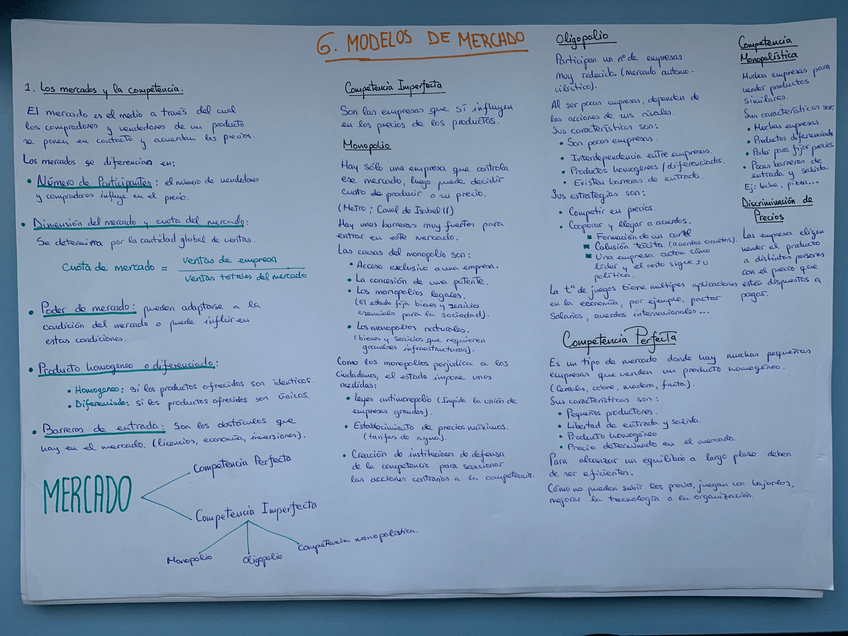 6. MODELOS DE MERCADO
1. Los mercados y la competencia.
El mercado es el medio a través del cual
los compradores y vendedores de un producto
se ponen en contacto y acuerdan los precios.
Los mercados se diferencian en:
• Número de Participantes: el número de vendedores
y compradores influye en el precio.
• Dimensión del mercado y cuota del mercado:
Se determina por la cantidad global de ventas.
Cuota de mercado = ventas de empresa
ventas totales del mercado
• Poder de mercado: pueden adaptarse a la
condición del mercado o puede influir en
estas condiciones.
• Producto homogeneo o diferenciado:
• Homogeneo: si los productos ofrecidos son identicos.
• Diferenciado: si los productos ofrecidos son únicos.
• Barreras de entrada: Son los obstáculos que
hay en el mercado. (licencias, economía, inversiones).
MERCADO
Competencia Perfecta
Competencia Imperfecta
Monopolio
Oligopolio
Competencia monopolística.
Competencia Imperfecta
Son las empresas que sí influyen
en los precios de los productos.
Monopolio
Hay sólo una empresa que controla
ese mercado, luego puede decidir
cuato de producir o su precio.
(Metro; Canal de Isabel II)
Hay unas barreras muy fuertes para
entrar en este mercado.
Las causas del monopolio son:
• Acceso exclusivo a una empresa.
• La concesión de una patente.
• Los monopolios legales.
(El estado fija bienes y servicios
esenciales para la sociedad).
• Los monopolios naturales.
(bienes y servicios que requieren
grandes infraestructuras).
Como los monopolios perjudica a los
ciudadanos, el estado impone unas
medidas:
• Leyes antimonopolio (Impide la unión de
empresas grandes).
• Establecimiento de precios máximos.
(tarifas de agua).
• Creación de instituciones de defensa
de la competencia para sancionar
las acciones contrarias a la competencia.
Oligopolio
Participan un nº de empresas
muy reducido. (mercado automo-
vilístico).
Al ser pocas empresas, dependen de
las acciones de sus rivales.
Sus características son:
• Son pocas empresas.
• Interdependencia entre empresas.
• Productos homogéneos / diferenciados.
• Existen barreras de entrada.
Sus estrategias son:
• Competir en precios.
• Cooperar y llegar a acuerdos.
Formación de un cartel
Colusión tácita (acuerdos ocultos).
Una empresa actúa cómo
líder y el resto sigue su
política.
La tª de juegos tiene multiples aplicaciones
en la economía, por ejemplo, pactar
salarios, acuerdos internacionales...
Competencia
Monopolística
Muchas empresas para
vender productos
similares
Sus características son:
• Muchas empresas.
• Productos diferenciados
• Poder para fijar precios
• Pocas barreras de
entrada y salida.
Ej:
Discriminación de
Precios
Las empresas eligen
vender el producto
a distintas personas
con el precio que
estén dispuestos a
pagar.
Competencia Perfecta
Es un tipo de mercado donde hay muchas pequeñas
empresas que venden un producto homogéneo.
(Cereales, cobre, madera, fruta).
Sus características son:
• Pequeños productores.
• Libertad de entrada y salida.
• Producto homogéneo
• Precio determinado en el mercado.
Para alcanzar un equilibrio a largo plazo deben
de ser eficientes.
Cómo no pueden subir los precios, juegan con bajarlos,
mejorar la tecnología o la organización.